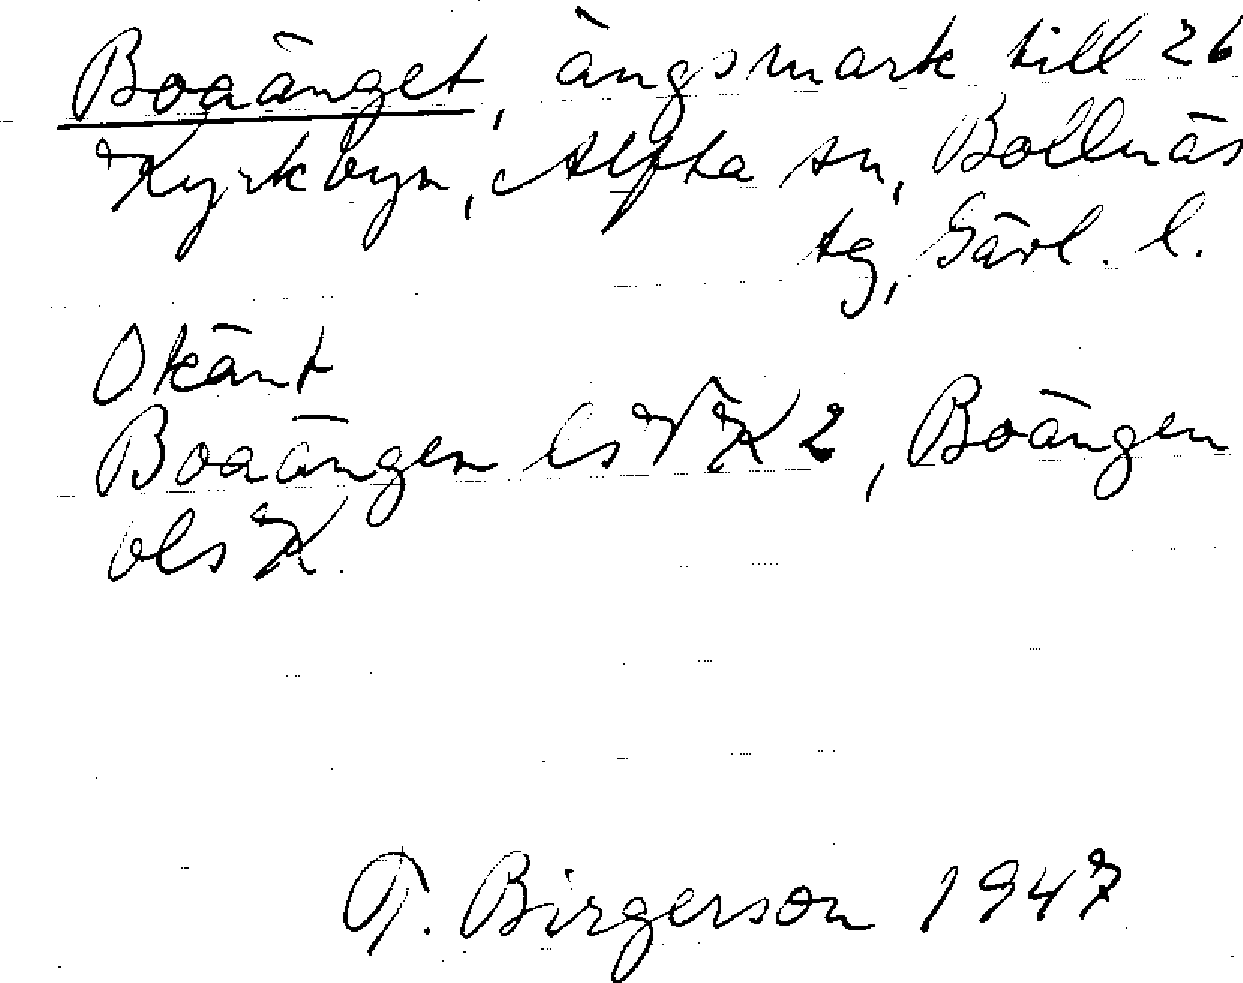 Boaänget, ängsmark till 26
Kyrkbyn, Alfta sn, Bollnäs
tg, Gävl. l.
Okänt
Boaängen ls K2, Boängen
bls K.
T. Birgerson 1947